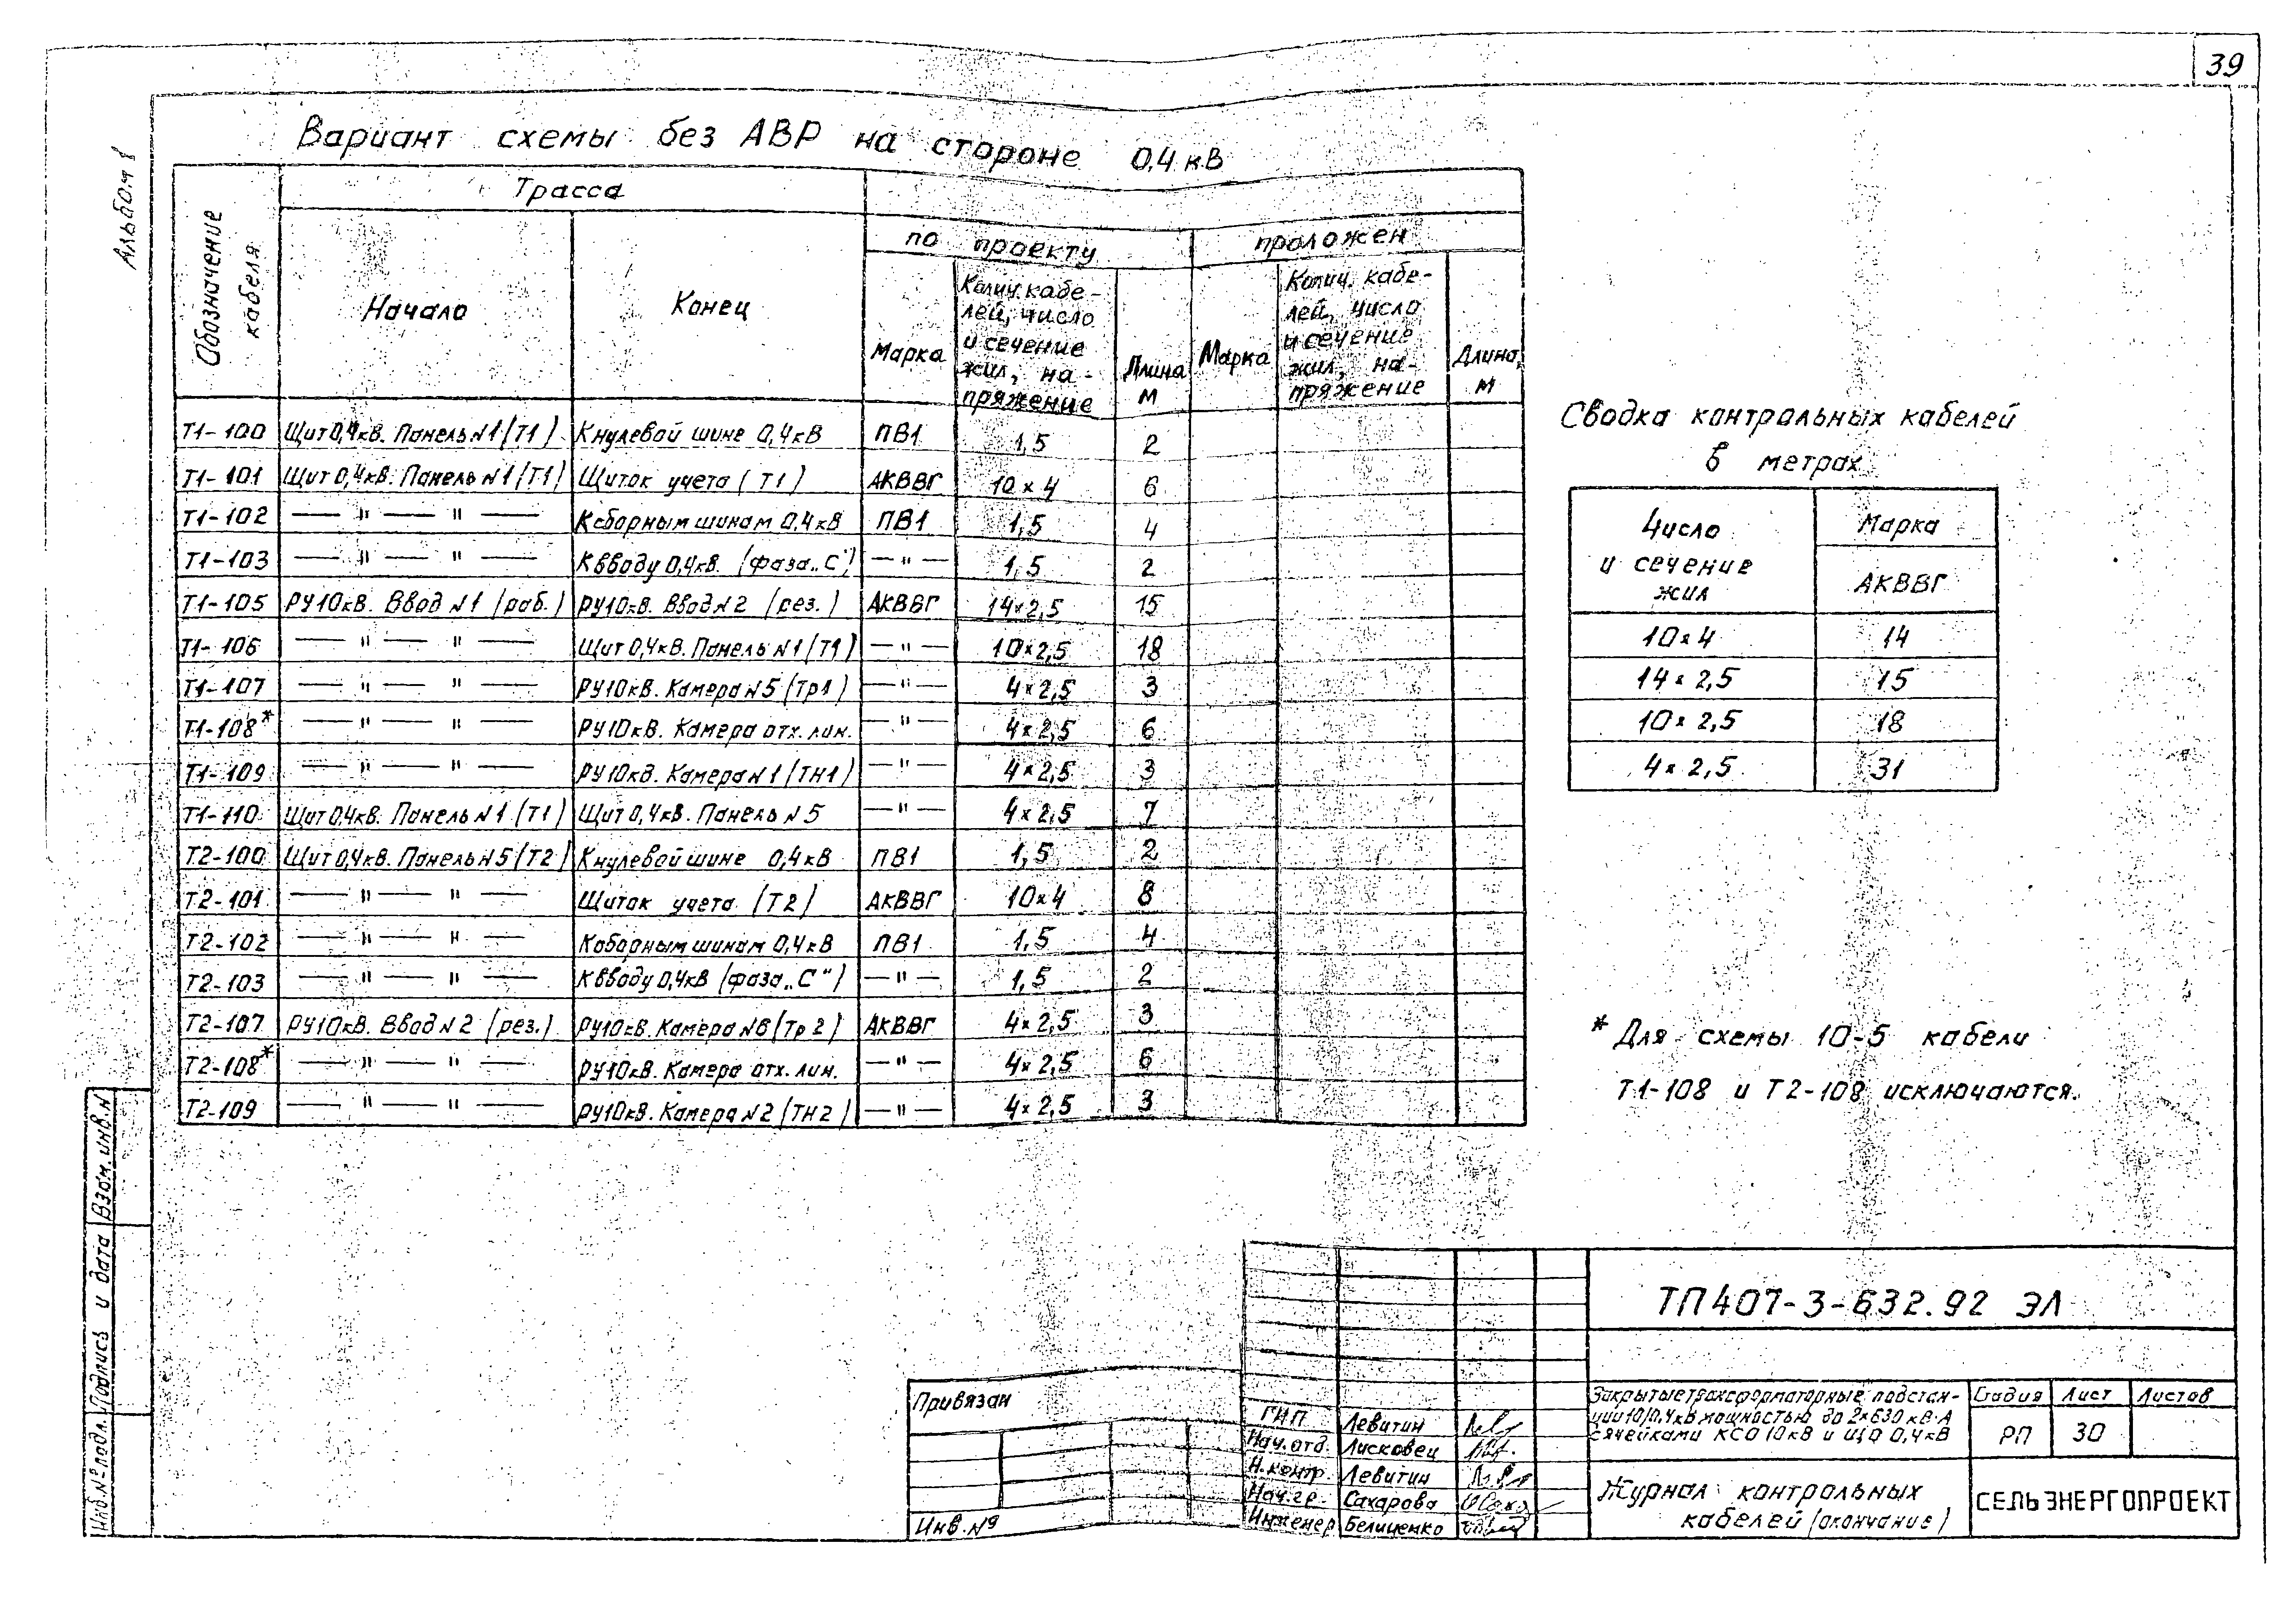 39
Альбом 1
Вариант схемы без АВР на стороне 0,4 кВ
Обозначение кабеля
Трасса
по проекту
проложен
Начало
Конец
Марка
Колич. кабе-
лей, число
и сечение
жил, на-
пряжение
Длина
м
Марка
Колич. кабе-
лей, число
и сечение
жил, на-
пряжение
Длина,
м
Т1-100 Щит 0,4кВ. Панель N1 (Т1) К нулевой шине 0,4кВ ПВ1 1,5 2
Т1-101 Щит 0,4кВ. Панель N1 (Т1) Щиток учета (Т1) АКВВГ 10×4 6
Т1-102 — " — " — К сборным шинам 0,4кВ ПВ1 1,5 4
Т1-103 — " — " — К вводу 0,4кВ. (фаза „С") — " — 1,5 2
Т1-105 РУ10кВ. Ввод N1 (раб.) РУ10кВ. Ввод N2 (рез.) АКВВГ 14×2,5 15
Т1-106 — " — " — Щит 0,4кВ. Панель N1 (Т1) — " — 10×2,5 18
Т1-107 — " — " — РУ10кВ. Камера N5 (Тр1) — " — 4×2,5 3
Т1-108* — " — " — РУ10кВ. Камера отх. лин. — " — 4×2,5 6
Т1-109 — " — " — РУ10кВ. Камера N1 (ТН1) — " — 4×2,5 3
Т1-110 Щит 0,4кВ. Панель N1 (Т1) Щит 0,4кВ. Панель N5 — " — 4×2,5 7
Т2-100 Щит 0,4кВ. Панель N5 (Т2) К нулевой шине 0,4кВ ПВ1 1,5 2
Т2-101 — " — " — Щиток учета (Т2) АКВВГ 10×4 8
Т2-102 — " — " — К сборным шинам 0,4кВ ПВ1 1,5 4
Т2-103 — " — " — К вводу 0,4кВ (фаза „С") — " — 1,5 2
Т2-107 РУ10кВ. Ввод N2 (рез.) РУ10кВ. Камера N6 (Тр2) АКВВГ 4×2,5 3
Т2-108* — " — " — РУ10кВ. Камера отх. лин. — " — 4×2,5 6
Т2-109 — " — " — РУ10кВ. Камера N2 (ТН2) — " — 4×2,5 3
Сводка контрольных кабелей
в метрах
Число
и сечение
жил
Марка
АКВВГ
10×4 14
14×2,5 15
10×2,5 18
4×2,5 31
* Для схемы 10-5 кабели
Т1-108 и Т2-108 исключаются.
Взам. инв. N
Подпись и дата
Инв. № подл.
Привязан
Инв. №
ГИП Левитин
Нач. отд. Лисковец
Н. контр. Левитин
Нач. гр. Сахарова
Инженер Белиценко
ТП 407-3-632.92 ЭЛ
Закрытые трансформаторные подстан-
ции 10/0,4кВ мощностью до 2×630 кВ·А
с ячейками КСО 10кВ и ЩО 0,4кВ
Стадия Лист Листов
РП 30
Журнал контрольных
кабелей (окончание)
СЕЛЬЭНЕРГОПРОЕКТ